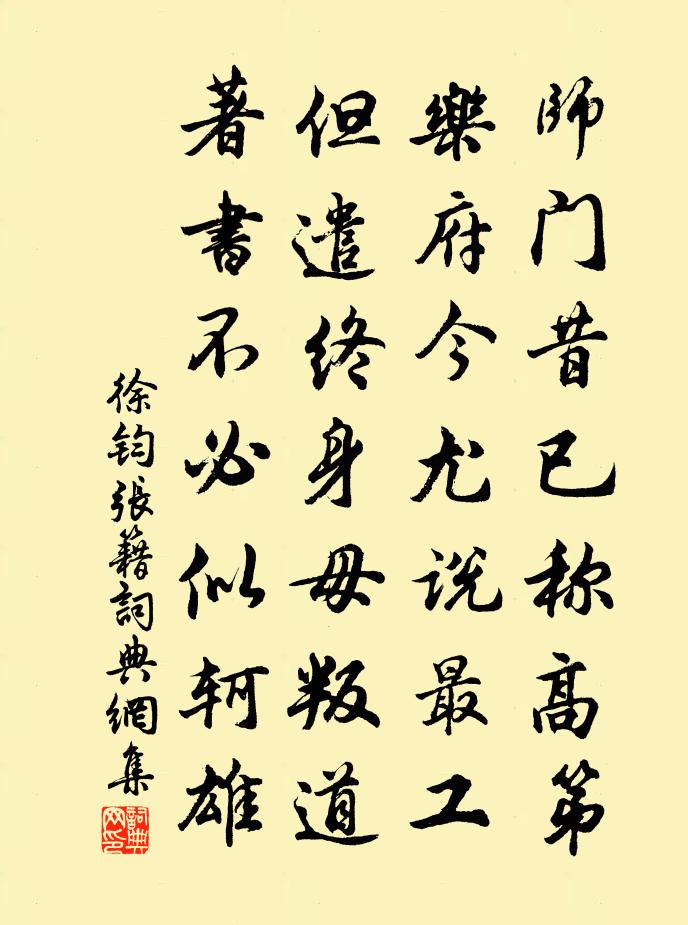 师门昔已称高第
樂府今尤说最工
但遣终身毋叛道
著書不必似轲雄
徐钧張籍詞典網集
詞典网印